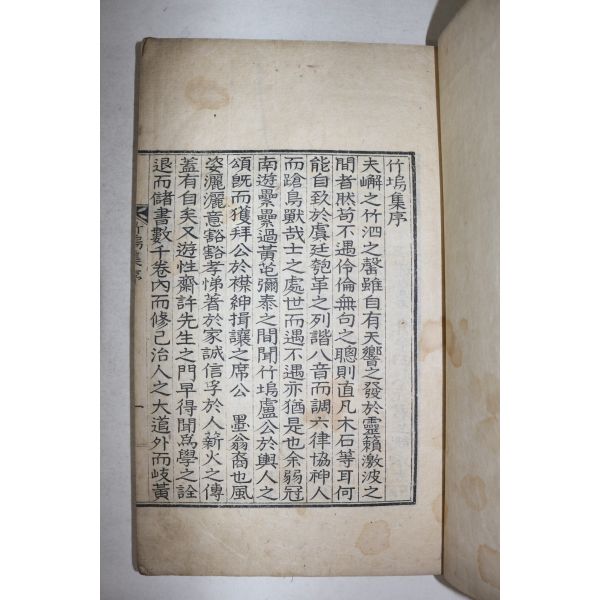 竹塢集序
夫嶰之竹泗之磬雖自有天響之發於靈籟激波之
間者肰茍不遇伶倫無句之聰則直凡木石等耳何
能自致於虞廷匏革之列諧八音而調六律協神人
而蹌鳥獸哉士之處世而遇不遇亦猶是也余弱冠
南遊纍纍過黃芚彌泰之間聞竹塢盧公於輿人之
頌旣而獲拜公於襟紳揖讓之席公 墨翁裔也風
姿灑灑意豁豁孝悌著於家誠信孚於人薪火之傳
蓋有自矣又遊性齋許先生之門早得聞爲學之詮
退而儲書數千卷內而修己治人之大道外而岐黃
竹塢集序
一